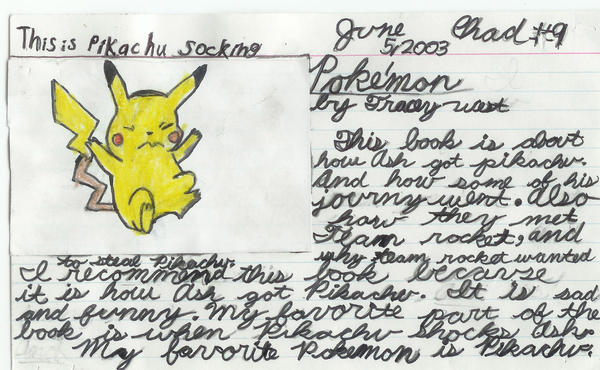 This is Pikachu socking
June 5, 2003
Chad #9
Pokémon
by Tracey West
This book is about
how Ash got pikachu.
And how some of his
journy went. Also
how they met
Team rocket, and
why team rocket wanted
to steal Pikachu.
I recommend this book because
it is how Ash got Pikachu. It is sad
and funny. My favorite part of the
book is when Pikachu shocks Ash.
My favorite Pokemon is Pikachu.